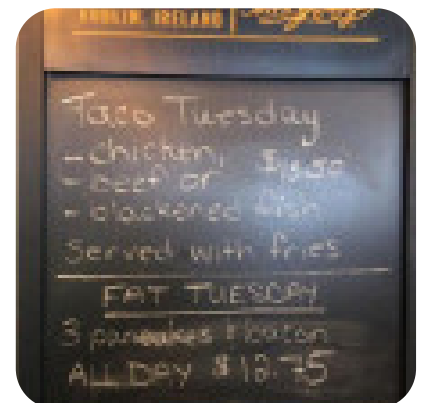 DUBLIN, IRELAND
Taco Tuesday
- chicken,
- beef or
- blackened fish
Served with fries
FAT TUESDAY
3 pancakes + bacon
ALL DAY $12.75